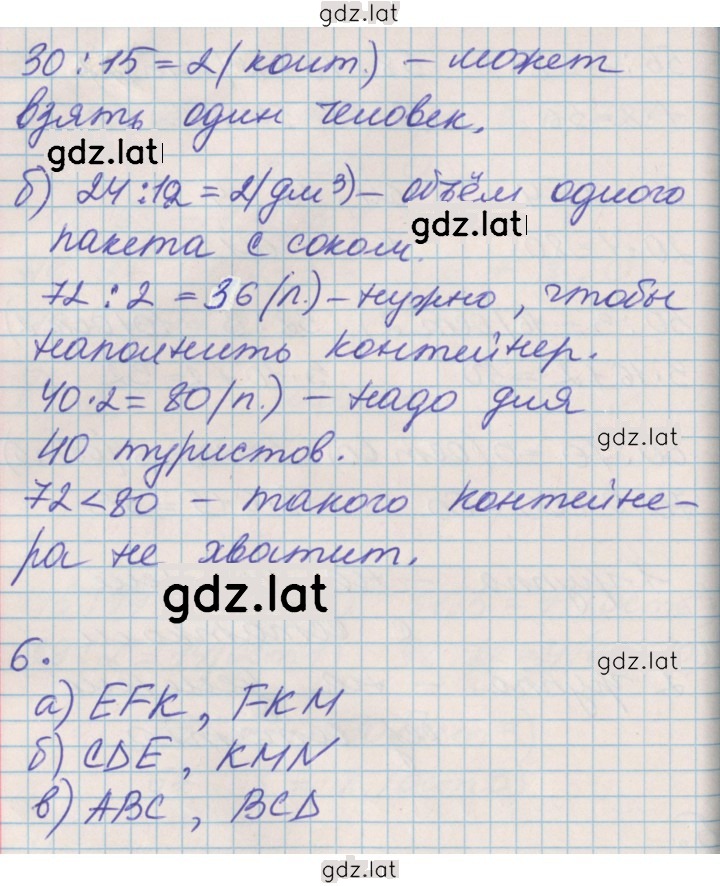 gdz.lat
30 : 15 = 2 (конт.) – может
взять один человек.
gdz.lat
б) 24 : 12 = 2 (дм³) – объём одного
gdz.lat
пакета с соком.
72 : 2 = 36 (п.) – нужно, чтобы
наполнить контейнер.
40 · 2 = 80 (п.) – надо для
gdz.lat
40 туристов.
72 < 80 – такого контейне-
ра не хватит.
gdz.lat
6.
gdz.lat
а) EFK, FKM
б) CDE, KMN
в) ABC, BCD
gdz.lat